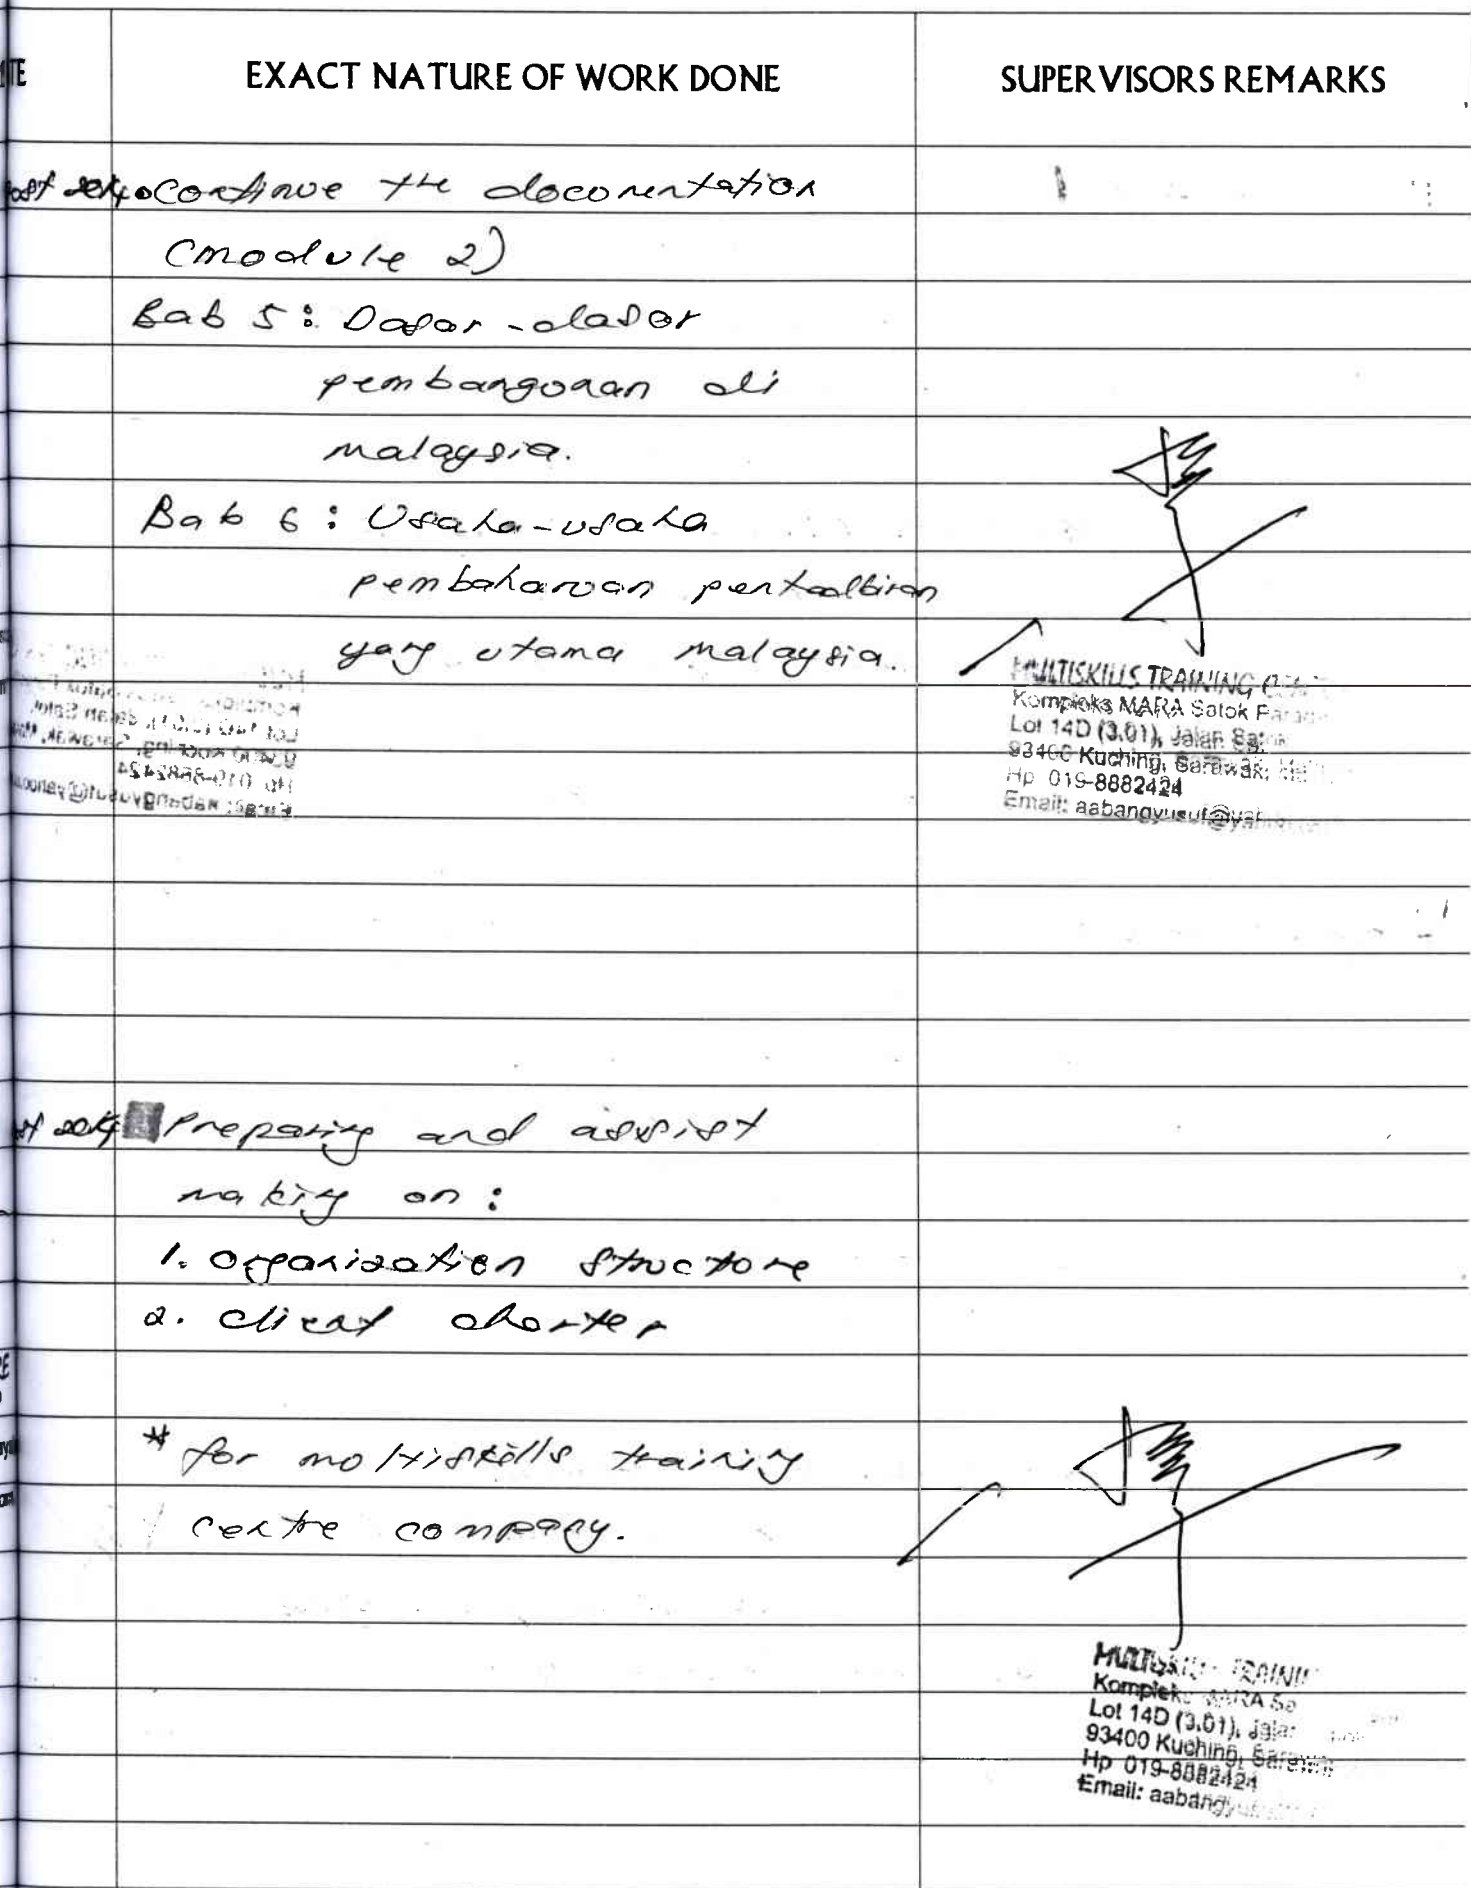 EXACT NATURE OF WORK DONE
SUPERVISORS REMARKS
Continue the documentation
(module 2)
Bab 5: Dasar-dasar
pembangunan di
malaysia.
Bab 6: Usaha-usaha
pembaharuan pentadbiran
yang utama malaysia.
MULTISKILLS TRAINING
Kompleks MARA Satok
Lot 14D (3.01), Jalan
93400 Kuching, Sarawak,
Hp 019-8882424
Email: aabangyusuf@
Preparing and assist
making on:
1. organization structure
2. client charter
* for multiskills training
centre company.
Kompleks MARA
Lot 14D (3.01),
93400 Kuching,
Hp 019-8882424
Email: